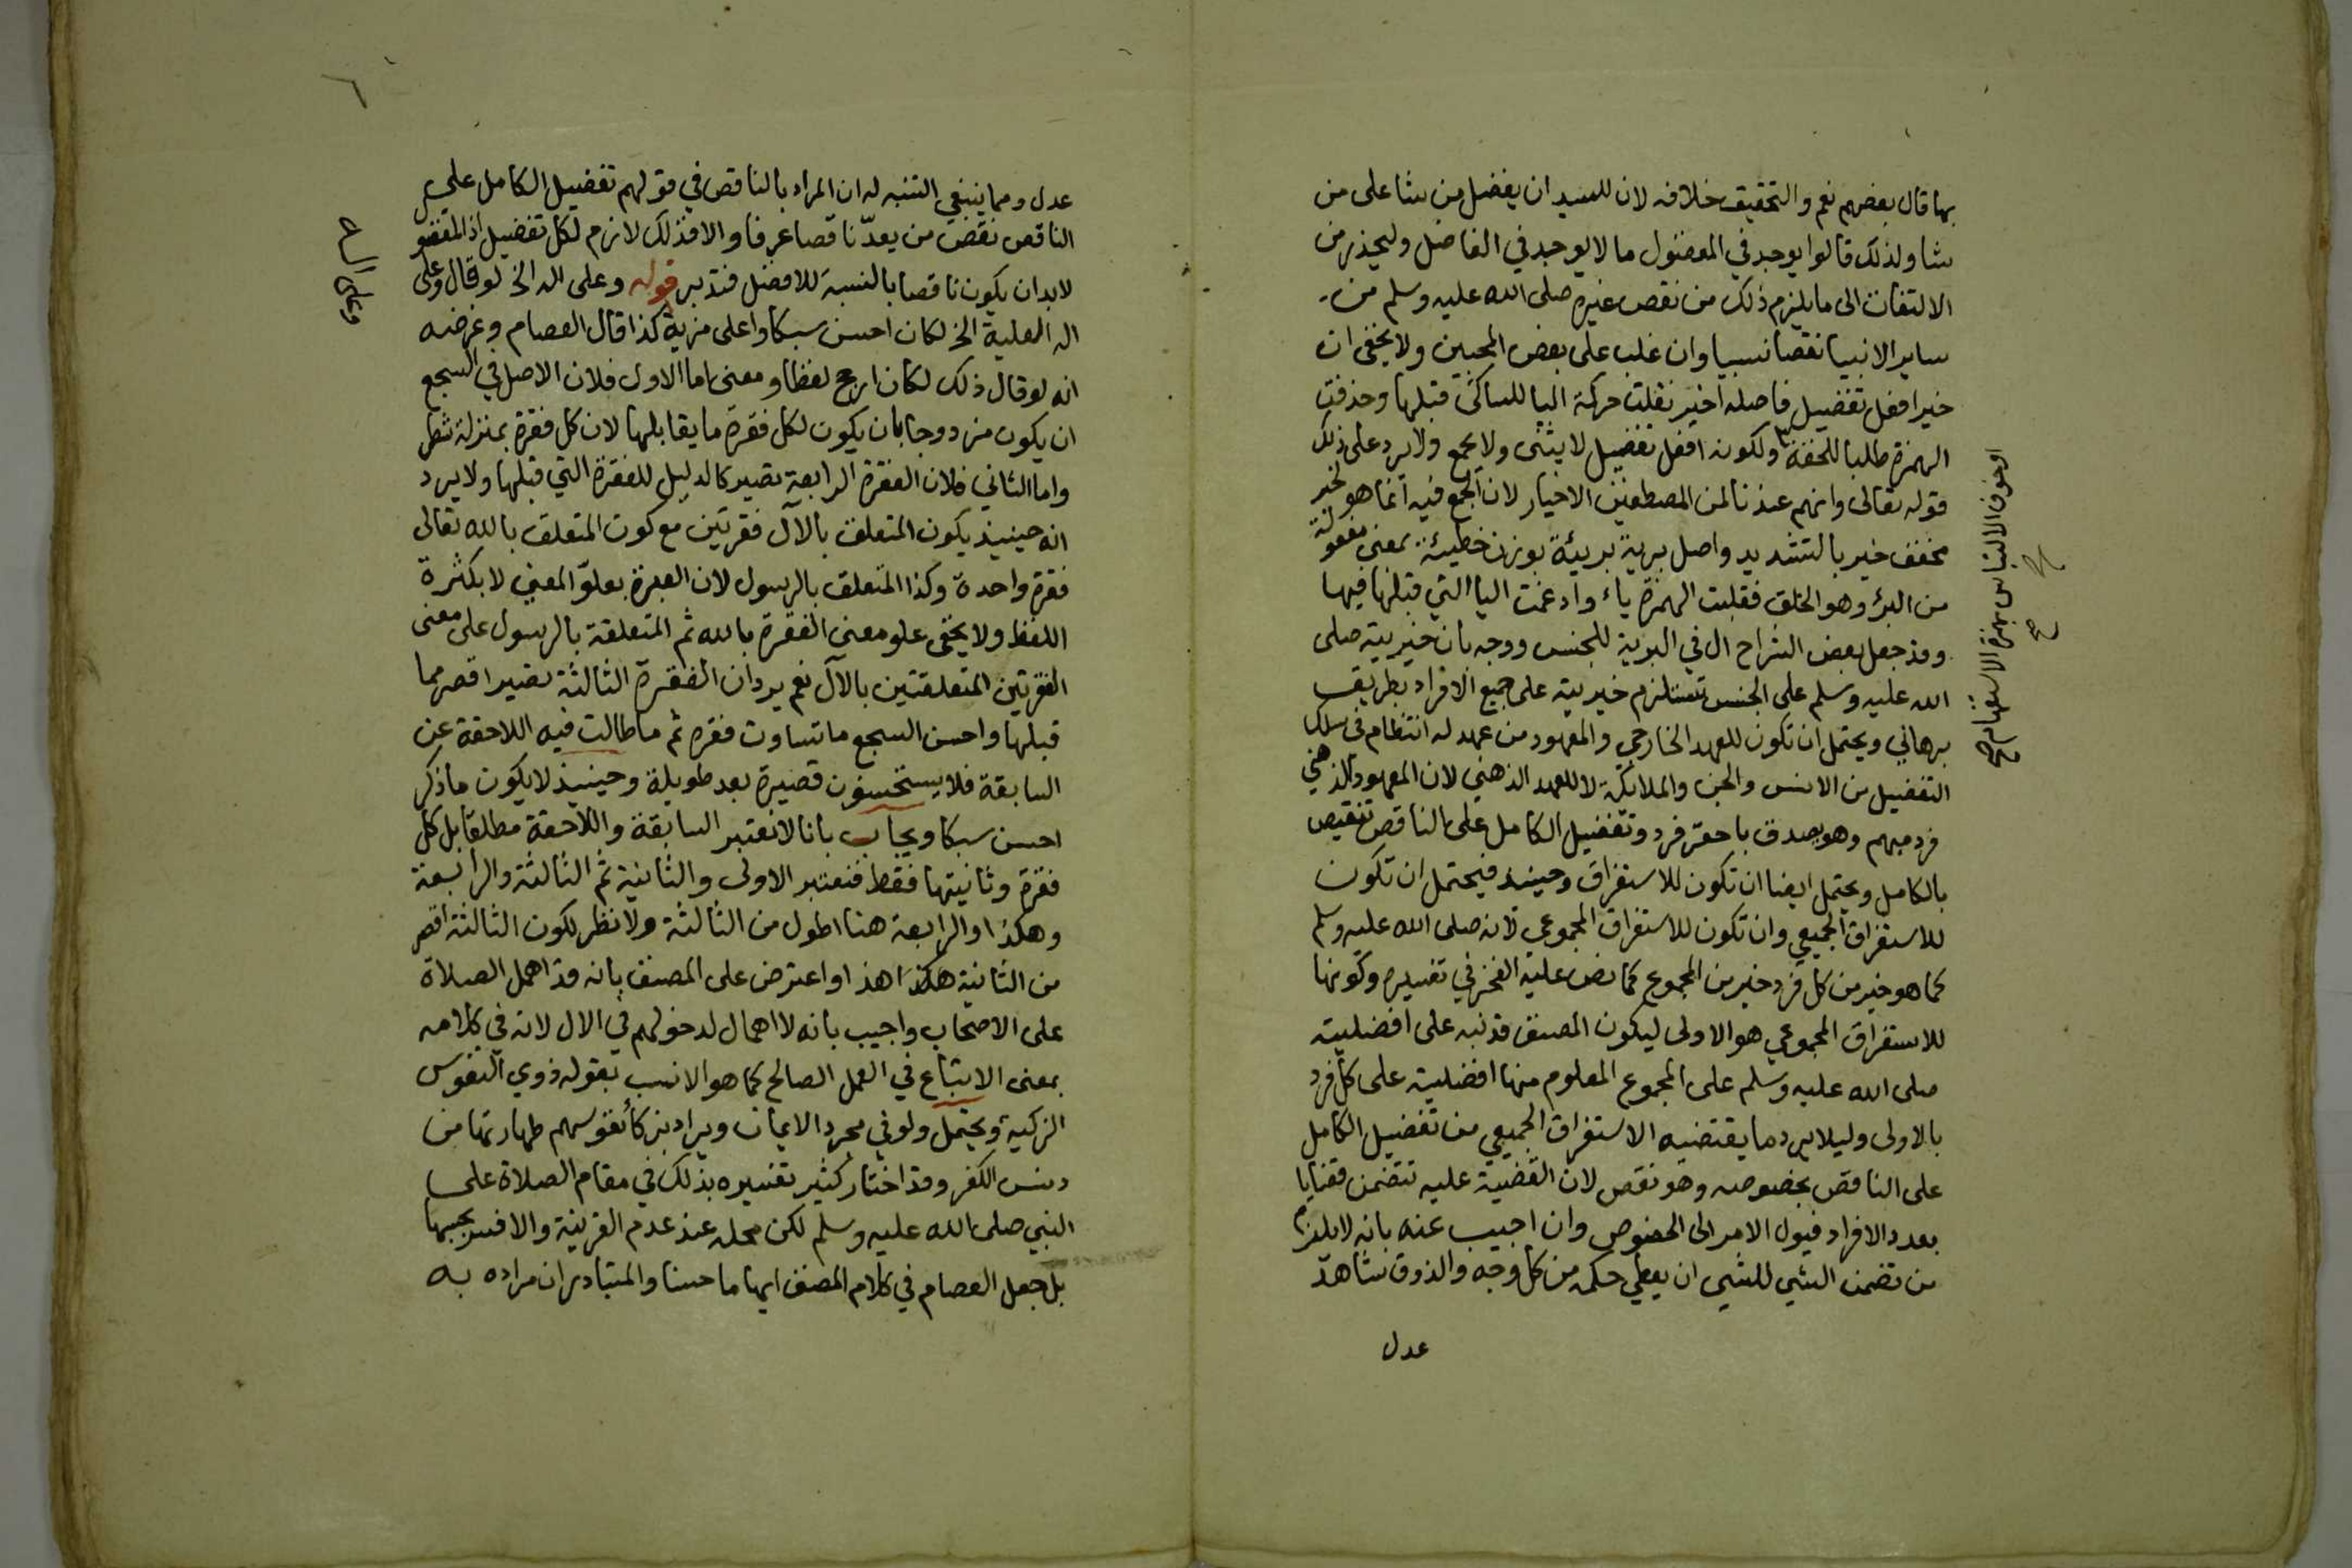 بها قال بعضهم نعم والتحقيق خلافه لان للسيد ان يفضل من شا على من
شا ولذلك قالوا يوجد في المفضول ما لا يوجد في الفاضل وليحذر من
الالتفات الى ما يلزم ذلك من نقص غيره صلى الله عليه وسلم من
ساير الانبيا نقصا نسبيا وان غلب على بعض المحبين ولا يخفى ان
خيرا افعل تفضيل فاصله اخير نقلت حركة اليا للساكن قبلها وحذفت
الهمزة طلبا للخفة ولكونه افعل تفضيل لا يثنى ولا يجمع ولا يرد على ذلك
قوله تعالى وانهم عندنا لمن المصطفين الاخيار لان الجمع فيه انما هو لخير
مخفف خير بالتشديد واصل برية بريئة بوزن خطيئة بمعنى مفعولة
من البرء وهو الخلق فقلبت الهمزة ياء وادغمت اليا التي قبلها فيها
وقد جعل بعض الشراح ال في البرية للجنس ووجه بان خيريته صلى
الله عليه وسلم على الجنس تستلزم خيريته على جميع الافراد بطريق
برهاني ويحتمل ان تكون للعهد الخارجي والمعهود من عهد له انتظام في سلك
التفضيل من الانس والجن والملائكة لا للعهد الذهني لان المعهود الذهني
فرد مبهم وهو يصدق باحقر فرد وتفضيل الكامل على الناقص تنقيص
بالكامل ويحتمل ايضا ان تكون للاستغراق وحينيذ فيحتمل ان تكون
للاستغراق الجميعي وان تكون للاستغراق المجموعي لانه صلى الله عليه وسلم
كما هو خير من كل فرد خير من المجموع كما نص عليه الفخر في تفسيره وكونها
للاستغراق المجموعي هو الاولى ليكون المصنف قد نبه على افضليته
صلى الله عليه وسلم على المجموع المعلوم منها افضليته على كل فرد
بالاولى وليلا يرد ما يقتضيه الاستغراق الجميعي من تفضيل الكامل
على الناقص بخصوصه وهو نقص لان القضية عليه تتضمن قضايا
بعدد الافراد فيول الامر الى الخصوص وان اجيب عنه بانه لا يلزم
من تضمن الشي للشي ان يعطي حكمه من كل وجه والذوق شاهد
عدل
او خوف الالتباس بهمزة الاستفهام صح
٦
عدل ومما ينبغي التنبه له ان المراد بالناقص في قولهم تفضيل الكامل على
الناقص نقص من يعدّ ناقصا عرفا والا فذلك لازم لكل تفضيل اذ المفضو
لا بد ان يكون ناقصا بالنسبة للافضل فتدبر قوله وعلى اله الخ لو قال وعلى
اله العلية الخ لكان احسن سبكا واعلى مزية كذا قال العصام وغرضه
انه لو قال ذلك لكان ارجح لفظا ومعنى اما الاول فلان الاصل في السجع
ان يكون مزدوجا بان يكون لكل فقرة ما يقابلها لان كل فقرة بمنزلة شطر
واما الثاني فلان الفقرة الرابعة تصير كالدليل للفقرة التي قبلها ولا يرد
انه حينيذ يكون المتعلق بالآل فقرتين مع كون المتعلق بالله تعالى
فقرة واحدة وكذا المتعلق بالرسول لان العبرة بعلوّ المعنى لا بكثرة
اللفظ ولا يخفى علو معنى الفقرة بالله ثم المتعلقة بالرسول على معنى
الفقرتين المتعلقتين بالآل نعم يرد ان الفقرة الثالثة تصير اقصر مما
قبلها واحسن السجع ما تساوت فقره ثم ما طالت فيه اللاحقة عن
السابقة فلا يستحسنون قصيرة بعد طويلة وحينيذ لا يكون ما ذكر
احسن سبكا ويجاب بانا لا نعتبر السابقة واللاحقة مطلقا بل كل
فقرة وثانيتها فقط فنعتبر الاولى والثانية ثم الثالثة والرابعة
وهكذا والرابعة هنا اطول من الثالثة ولا نظر لكون الثالثة اقصر
من الثانية هكذا هذا واعترض على المصنف بانه قد اهمل الصلاة
على الاصحاب واجيب بانه لا اهمال لدخولهم في الال لانه في كلامه
بمعنى الاتباع في العمل الصالح كما هو الانسب بقوله ذوي النفوس
الزكية ويحتمل ولو في مجرد الايمان ويراد بزكا نفوسهم طهارتها من
دنس الكفر وقد اختار كثير تفسيره بذلك في مقام الصلاة على
النبي صلى الله عليه وسلم لكن محله عند عدم القرينة والا فسر بحسبها
بل جعل العصام في كلام المصنف ايهاما حسنا والمتبادر ان مراده به
وعلى اله